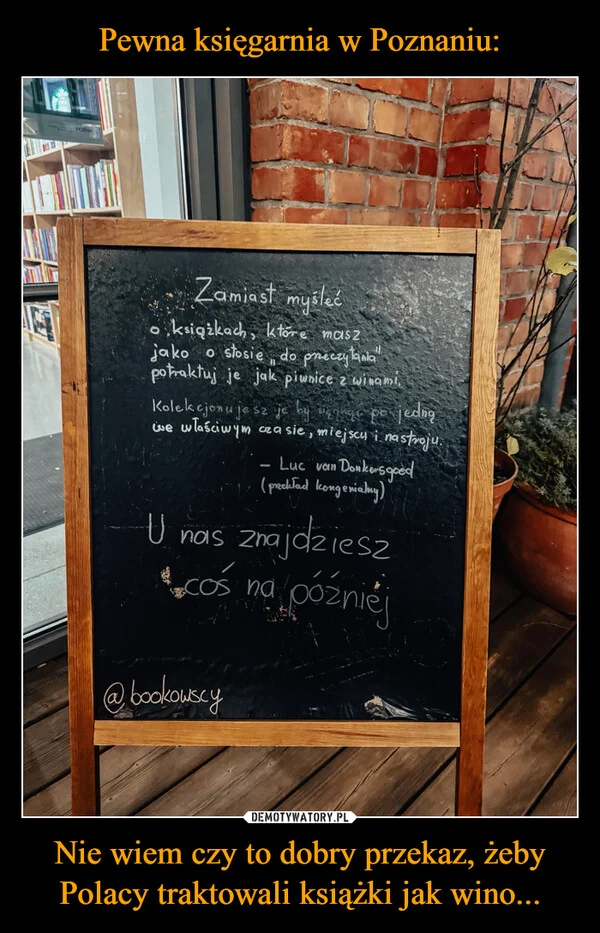 Pewna księgarnia w Poznaniu:
Zamiast myśleć
o książkach, które masz
jako o stosie „do przeczytania"
potraktuj je jak piwnice z winami.
Kolekcjonujesz je by sięgnąć po jedną
we właściwym czasie, miejscu i nastroju.
– Luc van Donkersgoed
(przekład kongenialny)
U nas znajdziesz
coś na później
@bookowscy
DEMOTYWATORY.PL
Nie wiem czy to dobry przekaz, żeby
Polacy traktowali książki jak wino...